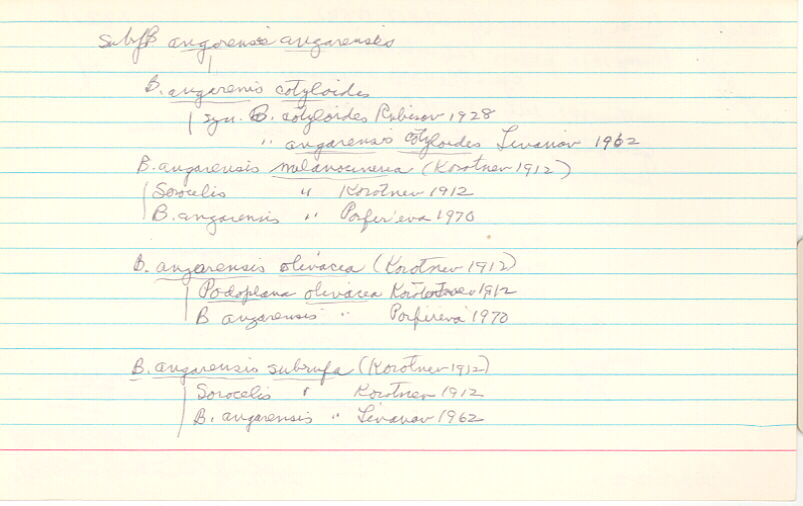 Subf B angarensis angarensis
B. angarenis cotyloides
Syn. B. cotyloides Rubisov 1928
" angarensis cotyloides Livanov 1962
B. angarensis melanocinerea (Korotnev 1912)
Sorocelis " Korotnev 1912
B. angarensis " Porfir'eva 1970
B. angarensis olivacea (Korotnev 1912)
Podoplana olivacea 1912
B angarensis " Porfireva 1970
B. angarensis subrufa (Korotnev 1912)
Sorocelis " Korotnev 1912
B. angarensis " Livanov 1962